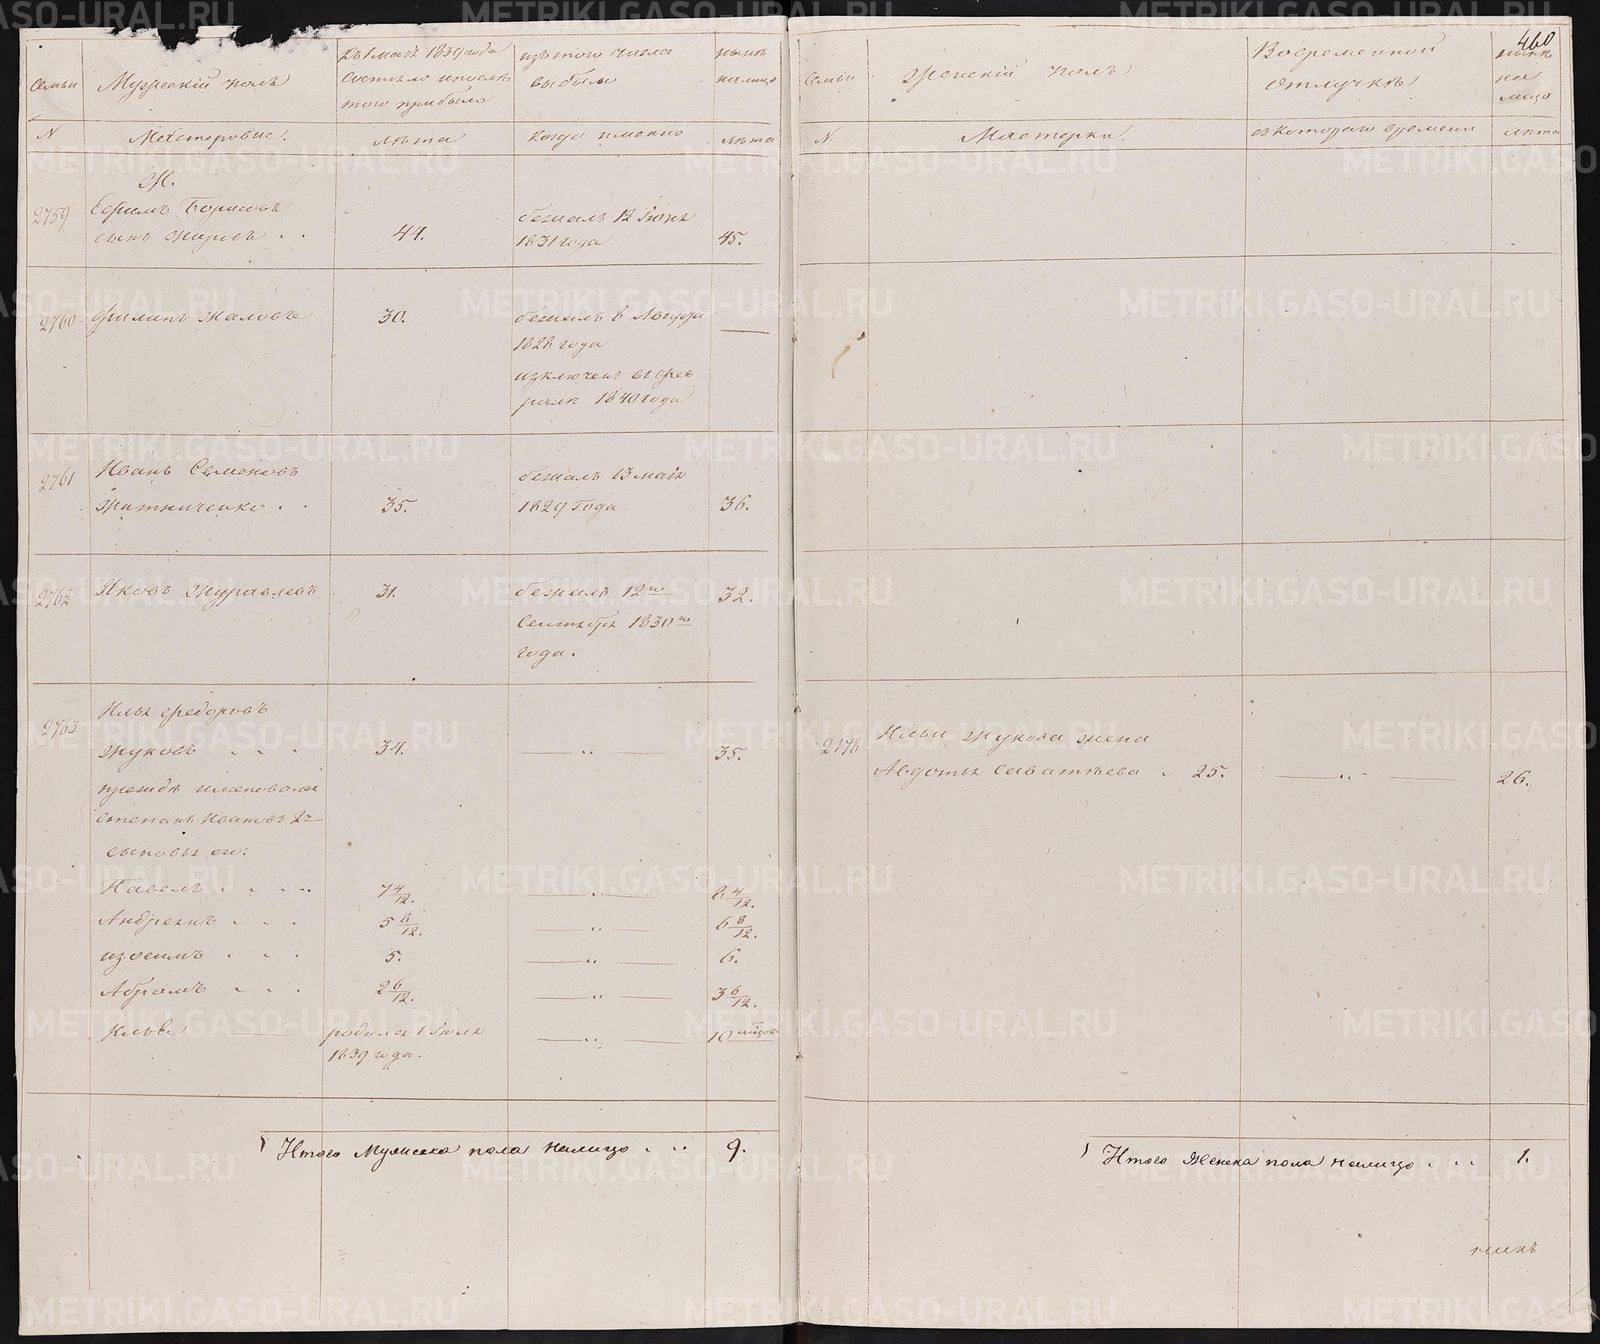 460
Семьи
Мужескій полъ
Къ 1 маія 1839 года
состояло и послѣ
того прибыло
изъ того числа
выбыли
нынѣ
на лицо
N
Мастеровые.
лѣта
когда именно
лѣта
Ж.
2759
Ефимъ Борисовъ
сынъ Жировъ . .
44.
бежалъ 12 Іюня
1831 года
45.
2760
Филипъ Жаловъ
30.
бежалъ в
1828 года
изключенъ в Фев
ралѣ 1840 года
2761
Иванъ Семеновъ
Житниченко . .
35.
бежалъ 13 маія
1829 года
36.
2762
Яковъ Журавлевъ
31.
бежалъ 12го
Сентября 1830го
года.
32.
2763
Илья Федоровъ
Жуковъ . . .
34.
35.
прежде именовался
Степанъ Ивановъ 2й
сыновья его:
Павелъ . . . .
7 4/12.
8 4/12.
Андреянъ . . .
5 8/12.
6 8/12.
Изосимъ . . .
5.
6.
Абрамъ . . .
2 6/12.
3 6/12.
Илья
родился 1 Іюля
1839 года.
10 мѣсяцов
Итого Мужеска пола налицо . . .
9.
Семьи
Женскій полъ
Во временной
отлучкѣ
нынѣ
на
лицо
N
Мастерки.
съ котораго времени
лѣта
2178
Ильи Жукова жена
Авдотья Саватѣева . 25.
26.
Итого Женска пола налицо . . .
1.